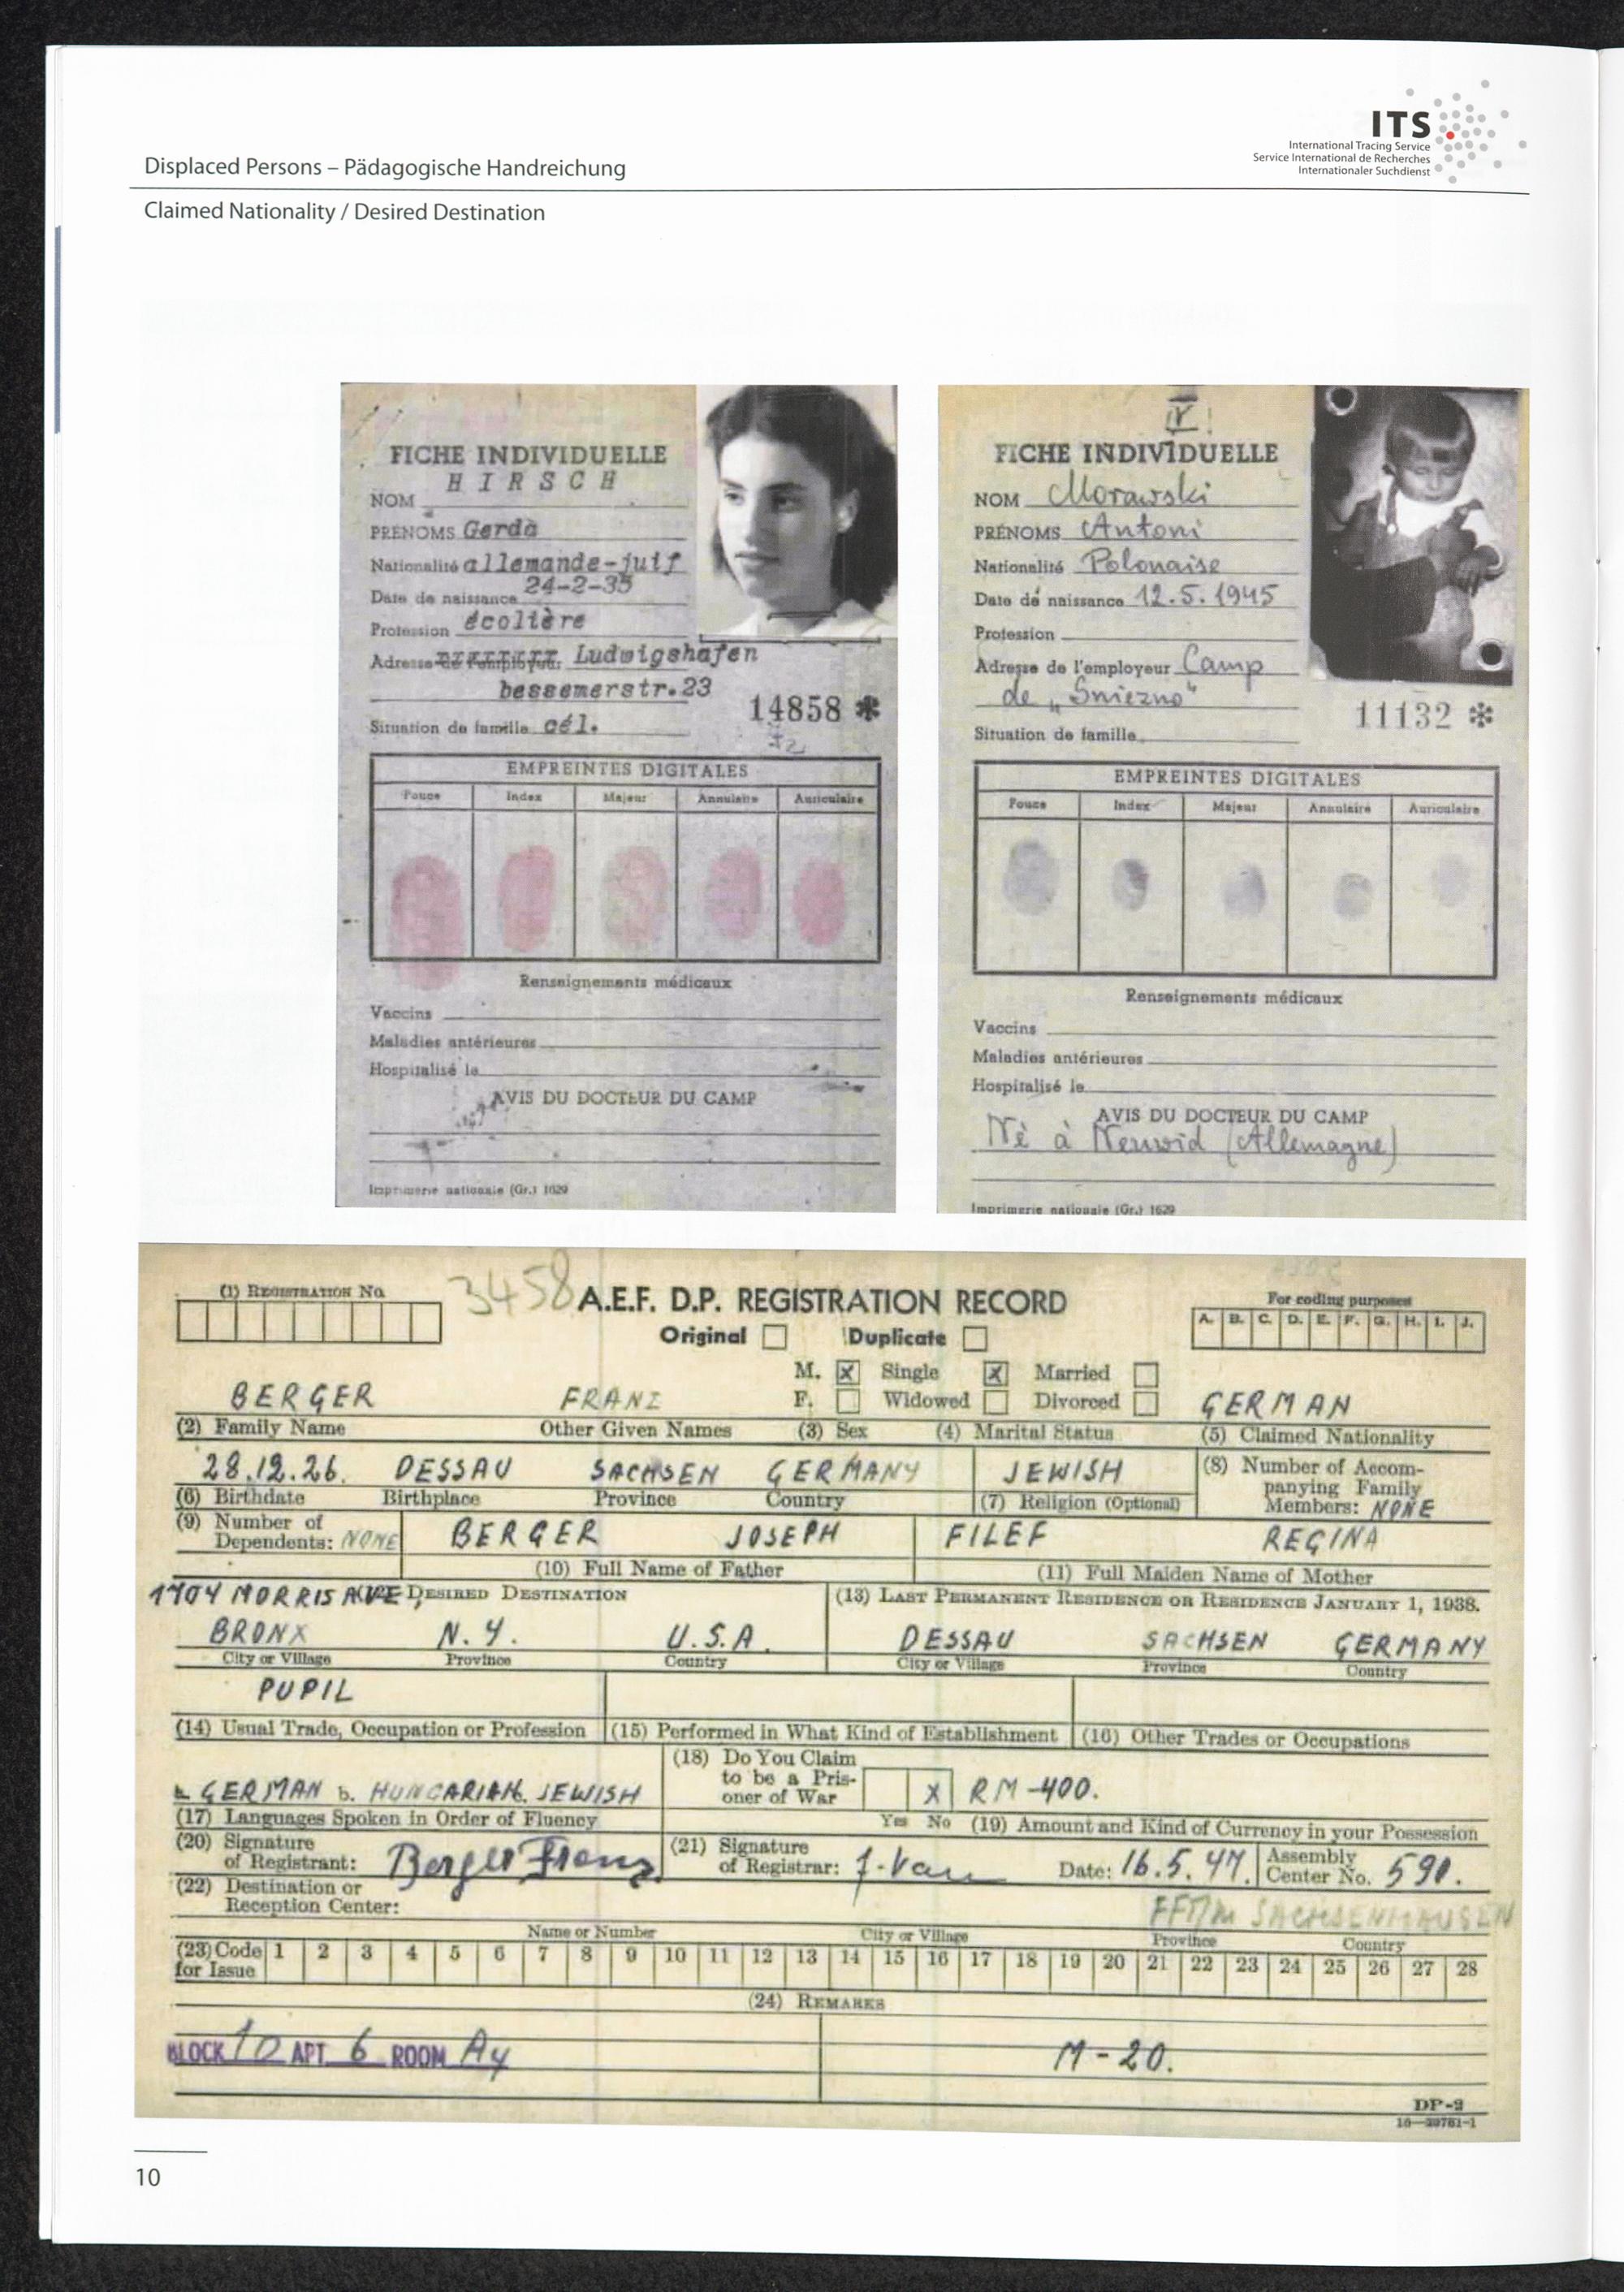 ITS
International Tracing Service
Service International de Recherches
Internationaler Suchdienst
Displaced Persons – Pädagogische Handreichung
Claimed Nationality / Desired Destination
FICHE INDIVIDUELLE
NOM HIRSCH
PRÉNOMS Gerda
Nationalité allemande-juif
Date de naissance 24-2-35
Profession écolière
Adresse de l'employeur Ludwigshafen
bessemerstr.23
14858 *
Situation de famille cél.
EMPREINTES DIGITALES
Pouce Index Majeur Annulaire Auriculaire
Renseignements médicaux
Vaccins
Maladies antérieures
Hospitalisé le
AVIS DU DOCTEUR DU CAMP
Imprimerie nationale (Gr.) 1629
IV
FICHE INDIVIDUELLE
NOM Morawski
PRÉNOMS Antoni
Nationalité Polonaise
Date de naissance 12.5.1945
Profession
Adresse de l'employeur Camp
de „Sniezno"
11132 *
Situation de famille
EMPREINTES DIGITALES
Pouce Index Majeur Annulaire Auriculaire
Renseignements médicaux
Vaccins
Maladies antérieures
Hospitalisé le
AVIS DU DOCTEUR DU CAMP
Né à Neuwid (Allemagne)
Imprimerie nationale (Gr.) 1629
(1) REGISTRATION No.
3458
A.E.F. D.P. REGISTRATION RECORD
For coding purposes
Original Duplicate
A. B. C. D. E. F. G. H. I. J.
M. X Single X Married
BERGER FRANZ F. Widowed Divorced GERMAN
(2) Family Name Other Given Names (3) Sex (4) Marital Status (5) Claimed Nationality
28.12.26. DESSAU SACHSEN GERMANY JEWISH
(6) Birthdate Birthplace Province Country (7) Religion (Optional)
(8) Number of Accom-
panying Family
Members: NONE
(9) Number of
Dependents: NONE
BERGER JOSEPH FILEF REGINA
(10) Full Name of Father (11) Full Maiden Name of Mother
1704 MORRIS AVE, DESIRED DESTINATION
(13) LAST PERMANENT RESIDENCE OR RESIDENCE JANUARY 1, 1938.
BRONX N.Y. U.S.A. DESSAU SACHSEN GERMANY
City or Village Province Country City or Village Province Country
PUPIL
(14) Usual Trade, Occupation or Profession (15) Performed in What Kind of Establishment (16) Other Trades or Occupations
GERMAN b. HUNGARIAN. JEWISH
(17) Languages Spoken in Order of Fluency
(18) Do You Claim
to be a Pris-
oner of War
X
Yes No
RM-400.
(19) Amount and Kind of Currency in your Possession
(20) Signature
of Registrant: Berger Franz
(21) Signature
of Registrar:
Date: 16.5.47.
Assembly
Center No. 591.
(22) Destination or
Reception Center:
FFT/M SACHSENHAUSEN
Name or Number City or Village Province Country
(23) Code
for Issue
1 2 3 4 5 6 7 8 9 10 11 12 13 14 15 16 17 18 19 20 21 22 23 24 25 26 27 28
(24) REMARKS
BLOCK 10 APT 6 ROOM Ay
M-20.
DP-2
16—39761-1
10